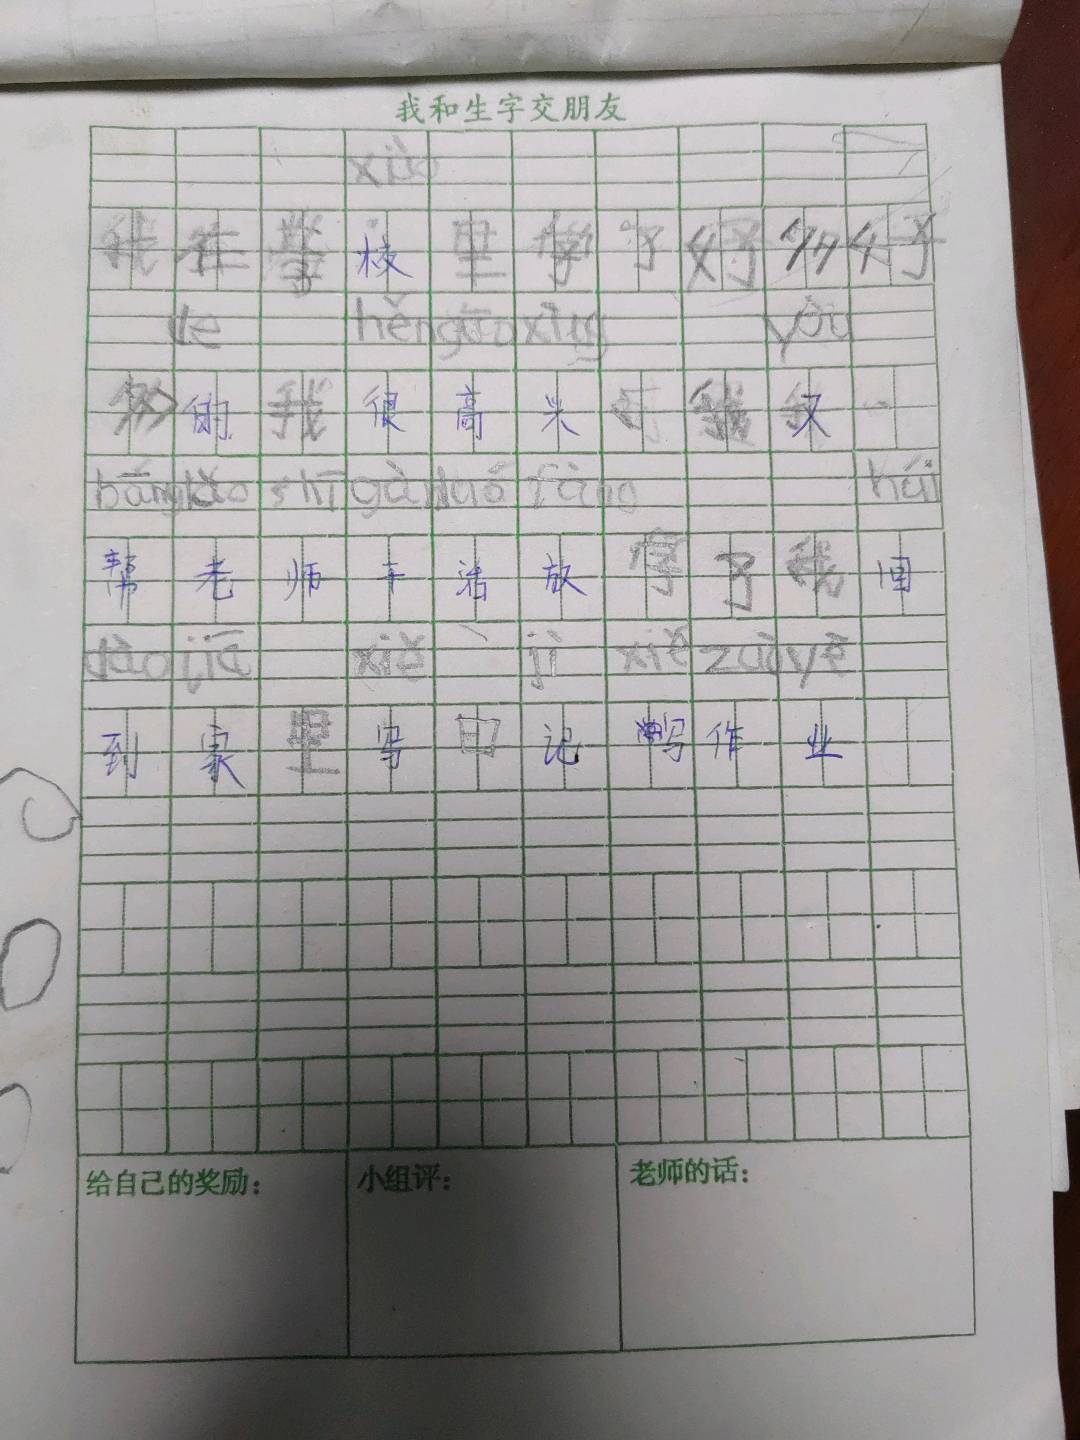 我和生字交朋友
xiào
我在学校里学了好多好
de hěn gāo xìng yòu
多的我很高兴 我又
bāng lǎo shī gàn huó fàng huí
帮老师干活放学了我回
dào jiā xiě jì xiě zuò yè
到家里写日记写作业
给自己的奖励: 小组评: 老师的话: